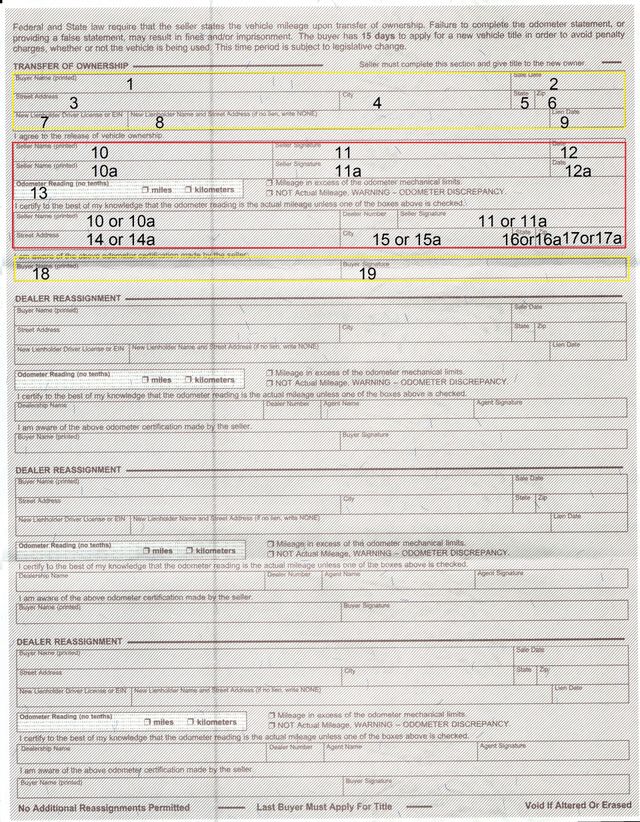 Federal and State law require that the seller states the vehicle mileage upon transfer of ownership. Failure to complete the odometer statement, or
providing a false statement, may result in fines and/or imprisonment. The buyer has 15 days to apply for a new vehicle title in order to avoid penalty
charges, whether or not the vehicle is being used. This time period is subject to legislative change.
TRANSFER OF OWNERSHIP Seller must complete this section and give title to the new owner.
Buyer Name (printed) Sale Date
1 2
Street Address City State Zip
3 4 5 6
New Lienholder Driver License or EIN New Lienholder Name and Street Address (if no lien, write NONE) Lien Date
7 8 9
I agree to the release of vehicle ownership.
Seller Name (printed) Seller Signature Date
10 11 12
Seller Name (printed) Seller Signature Date
10a 11a 12a
Odometer Reading (no tenths) miles kilometers Mileage in excess of the odometer mechanical limits.
13 NOT Actual Mileage, WARNING – ODOMETER DISCREPANCY.
I certify to the best of my knowledge that the odometer reading is the actual mileage unless one of the boxes above is checked.
Seller Name (printed) Dealer Number Seller Signature
10 or 10a 11 or 11a
Street Address City State Zip
14 or 14a 15 or 15a 16or16a17or17a
I am aware of the above odometer certification made by the seller.
Buyer Name (printed) Buyer Signature
18 19
DEALER REASSIGNMENT
Buyer Name (printed) Sale Date
Street Address City State Zip
New Lienholder Driver License or EIN New Lienholder Name and Street Address (if no lien, write NONE) Lien Date
Odometer Reading (no tenths) miles kilometers Mileage in excess of the odometer mechanical limits.
NOT Actual Mileage, WARNING – ODOMETER DISCREPANCY.
I certify to the best of my knowledge that the odometer reading is the actual mileage unless one of the boxes above is checked.
Dealership Name Dealer Number Agent Name Agent Signature
I am aware of the above odometer certification made by the seller.
Buyer Name (printed) Buyer Signature
DEALER REASSIGNMENT
Buyer Name (printed) Sale Date
Street Address City State Zip
New Lienholder Driver License or EIN New Lienholder Name and Street Address (if no lien, write NONE) Lien Date
Odometer Reading (no tenths) miles kilometers Mileage in excess of the odometer mechanical limits.
NOT Actual Mileage, WARNING – ODOMETER DISCREPANCY.
I certify to the best of my knowledge that the odometer reading is the actual mileage unless one of the boxes above is checked.
Dealership Name Dealer Number Agent Name Agent Signature
I am aware of the above odometer certification made by the seller.
Buyer Name (printed) Buyer Signature
DEALER REASSIGNMENT
Buyer Name (printed) Sale Date
Street Address City State Zip
New Lienholder Driver License or EIN New Lienholder Name and Street Address (if no lien, write NONE) Lien Date
Odometer Reading (no tenths) miles kilometers Mileage in excess of the odometer mechanical limits.
NOT Actual Mileage, WARNING – ODOMETER DISCREPANCY.
I certify to the best of my knowledge that the odometer reading is the actual mileage unless one of the boxes above is checked.
Dealership Name Dealer Number Agent Name Agent Signature
I am aware of the above odometer certification made by the seller.
Buyer Name (printed) Buyer Signature
No Additional Reassignments Permitted Last Buyer Must Apply For Title Void If Altered Or Erased